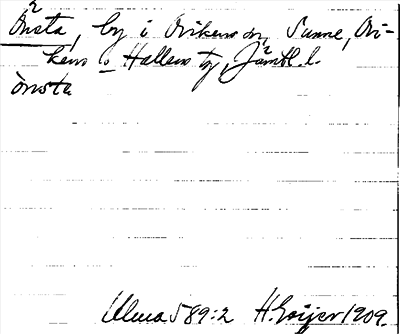 Önsta, by i Ovikens sn, Sunne, Ovi-
kens o Hallens tg, Jämtl. l.
ònsta
Ulma 589:2 H. Geijer 1909.